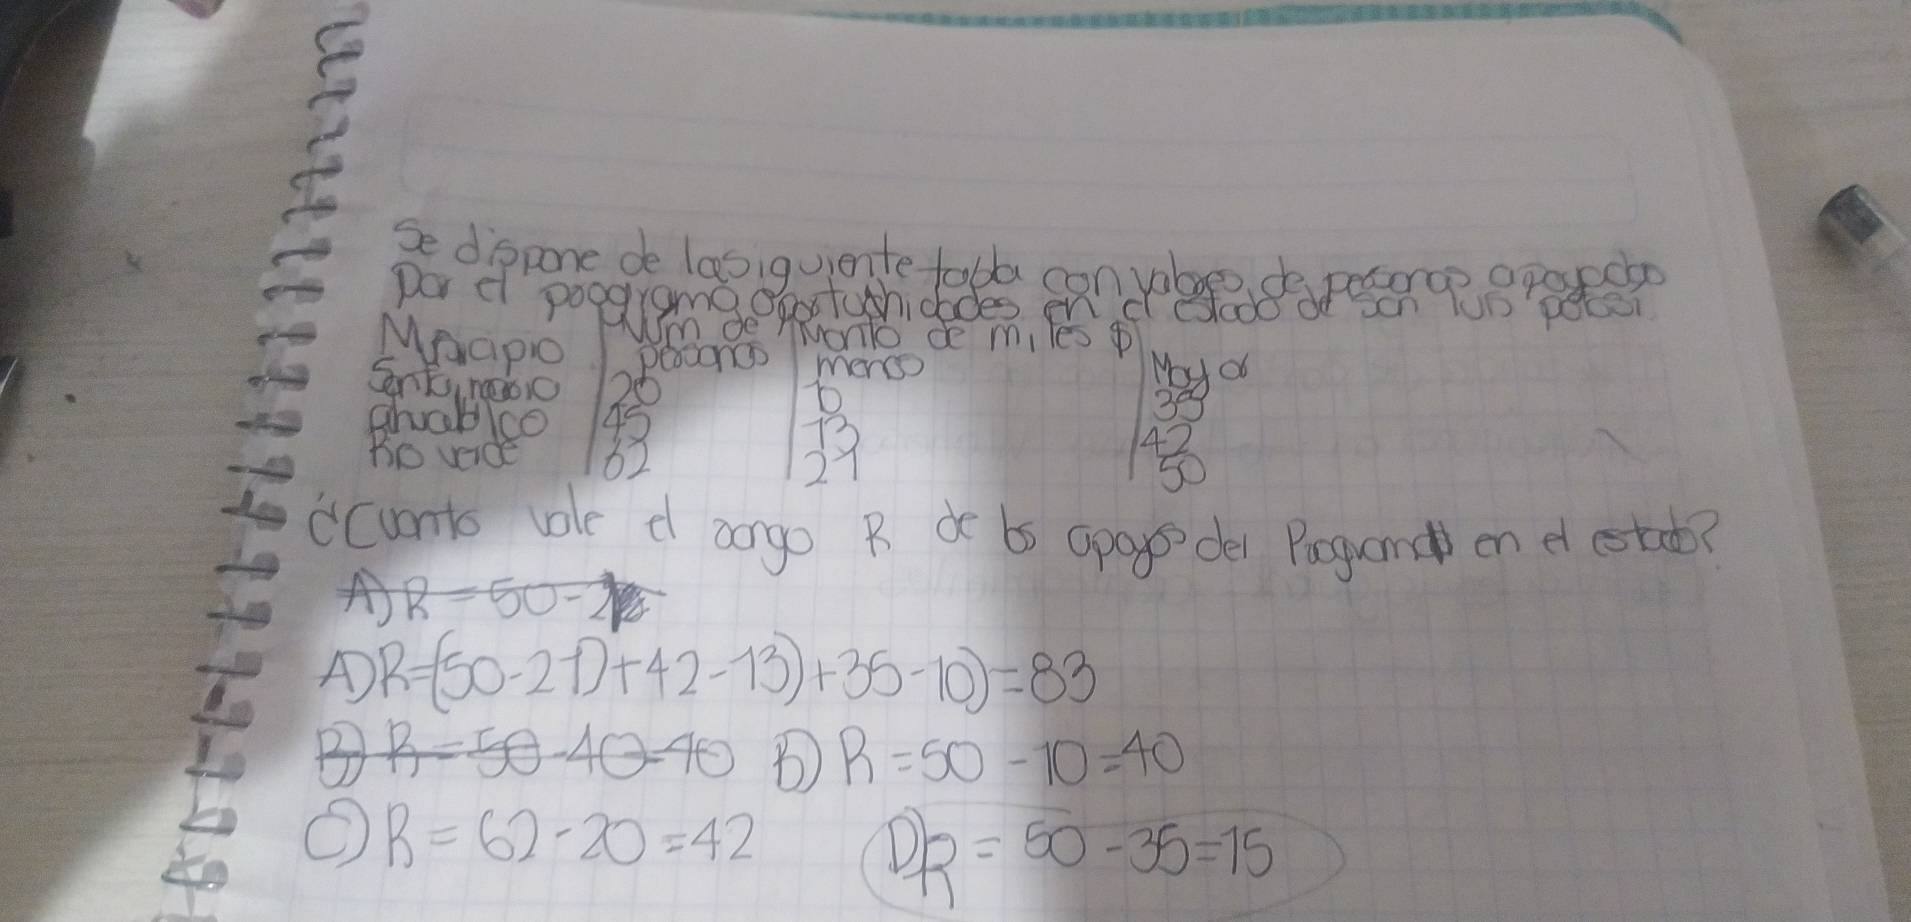 Se dispone de la siguiente tabla con valores de personas apoyados
Por el poograma oportunhidades en el estado de san luis potosi
Num de Monto de miles $
personas menso Mayor
20 35
45 13 42
Rio verde 62 21 50
¿Cuanto vale el rango R de los apoyos del Programa en el estado?
A) R = 50 - 2
A) R=(50-21)+42-13)+35-10)=83
B) R = 50 - 40 = 40 B) R = 50 - 10 = 40
C) R = 62 - 20 = 42 D) R = 50 - 35 = 15